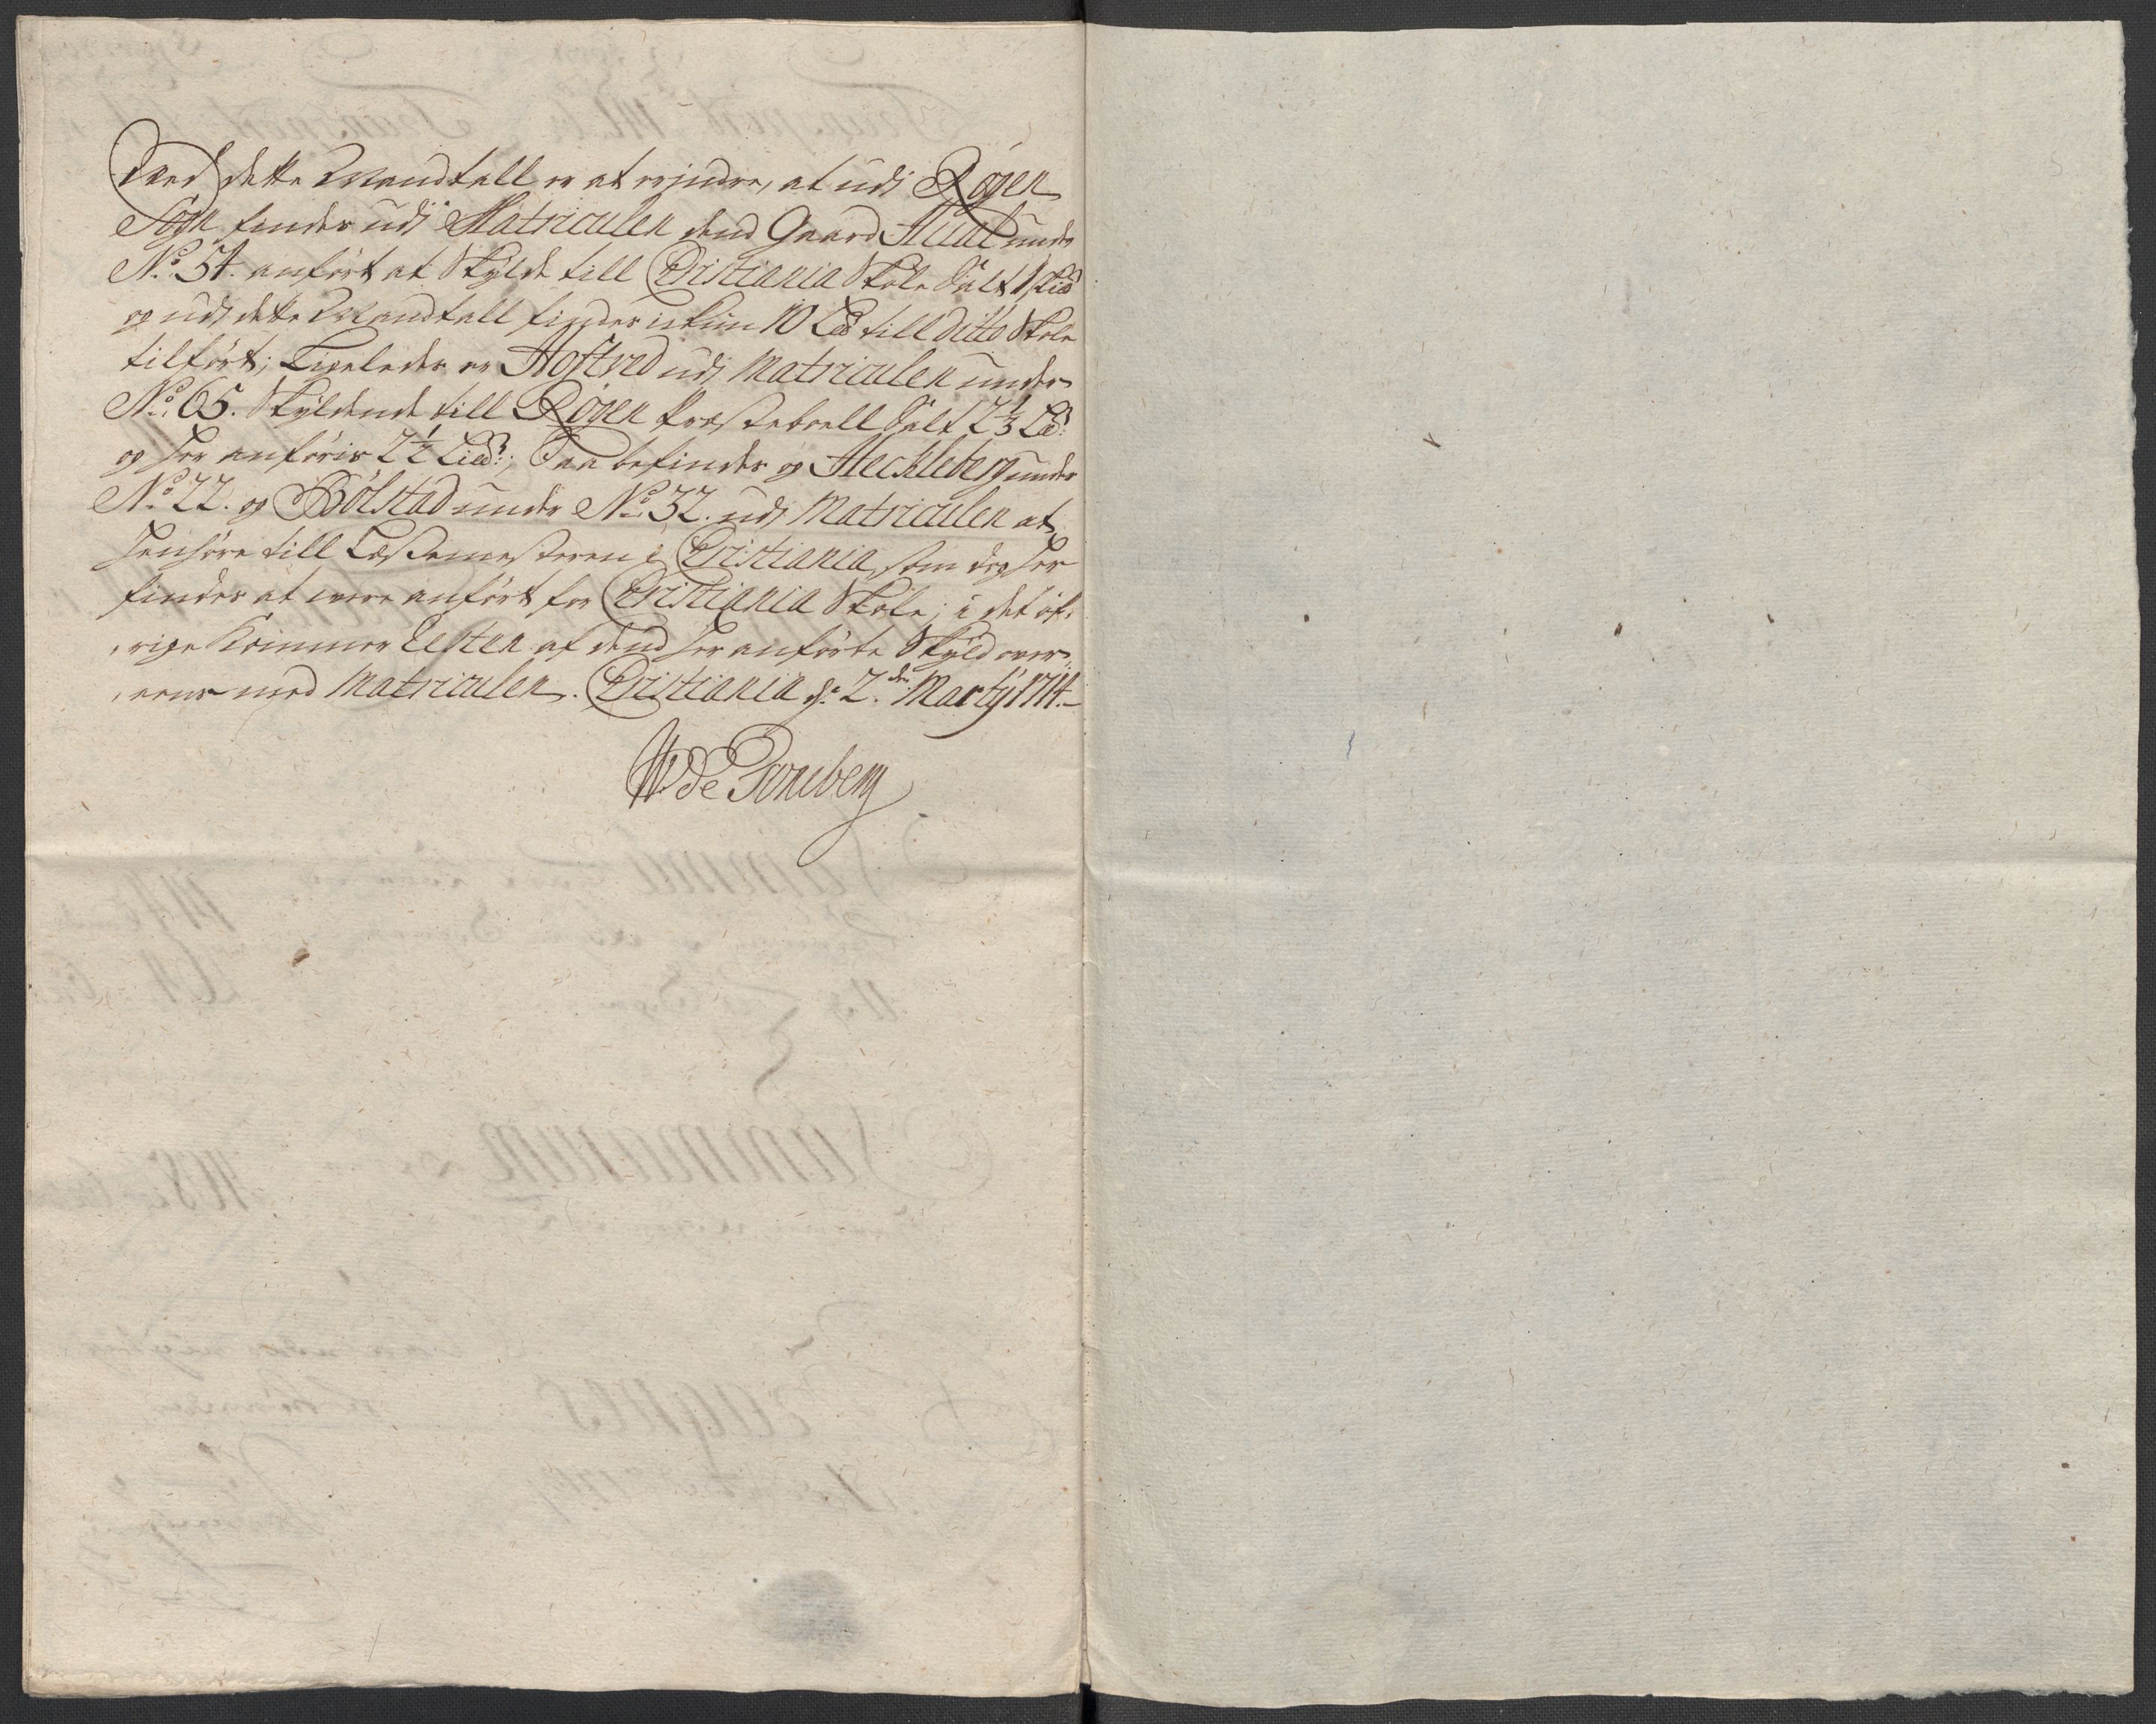 Ved dette Mandtall er at erjndre, at udj Røgen
Sogn findes udj Matriculen dend Gaard Hual under
No. 54. anført at Skylde till Christiania Skole Salt 1 Skid
og udj dette Mandtall findes ickun 10 Lod till ditto Skole
tilført; Ligeledes er Hofsrud udj Matriculen under
No. 65. Skyldende till Røgen Præstebroell Salt 2⅓ Lid:
og her anføris 2½ Lid:; Saa befindes og Heckleberg under
No. 22. og Bölstad under No. 32. udj Matriculen at
henhøre till Læssemesteren i Christiania, som dog her
findes at were anført for Christiania Skole; i det öf-
,rige kommer Resten af dend her anførte Skyld over-
,eens med Matriculen. Christiania d. 2den Martij 1714.
W de Tonsberg